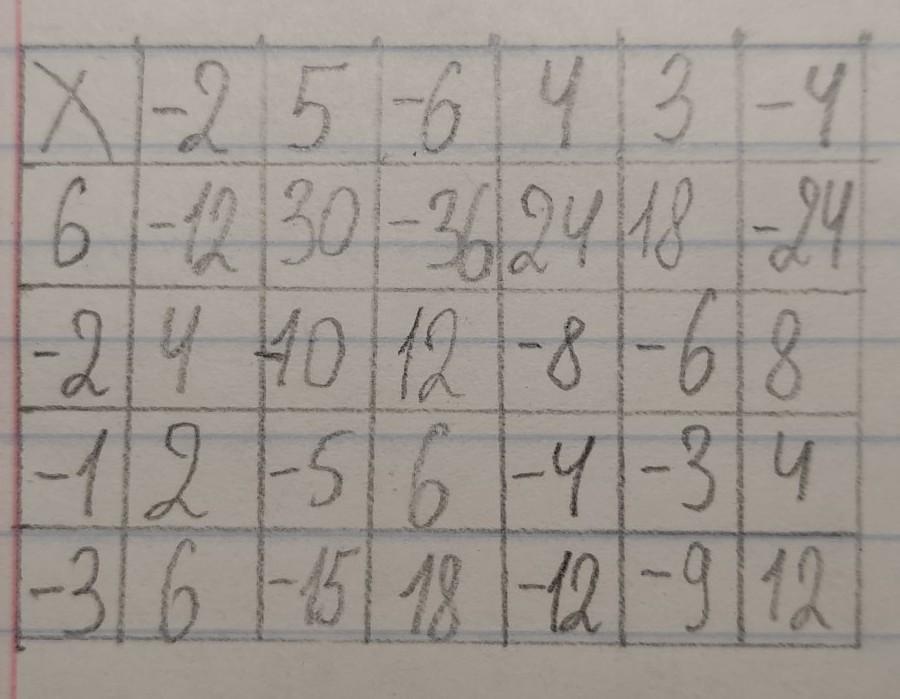 X -2 5 -6 4 3 -4
6 -12 30 -36 24 18 -24
-2 4 -10 12 -8 -6 8
-1 2 -5 6 -4 -3 4
-3 6 -15 18 -12 -9 12